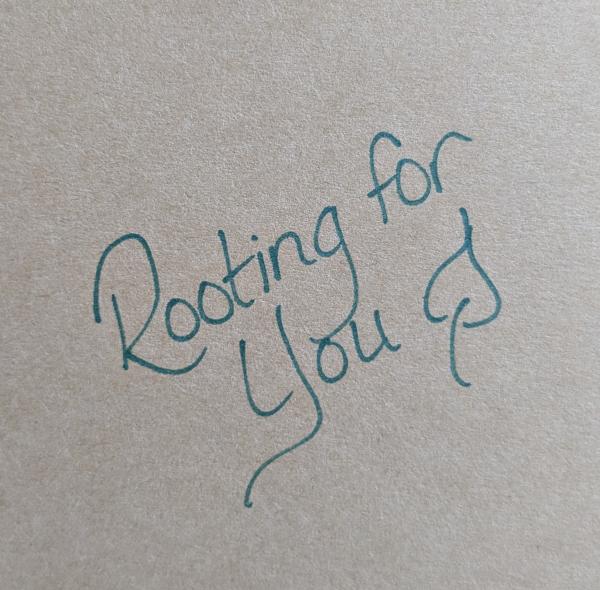 Rooting for
You